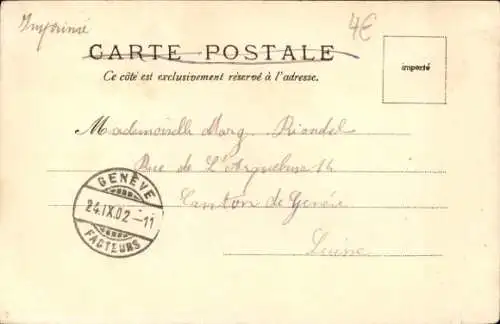 Imprimé
4€
CARTE POSTALE
Ce côté est exclusivement réservé à l'adresse.
importé
Mademoiselle Marg. Riondel
Rue de L'Arquebuse 14
Canton de Genève
Suisse
GENÈVE
24.IX.02.-11
FACTEURS